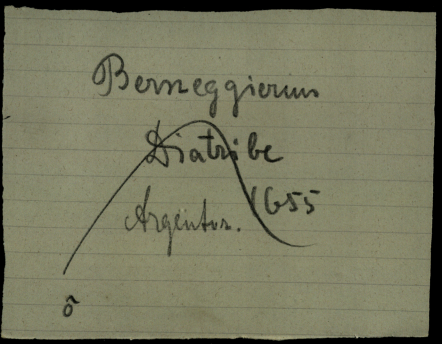 Berneggierum
Diatribe
Argentor. 1655
õ